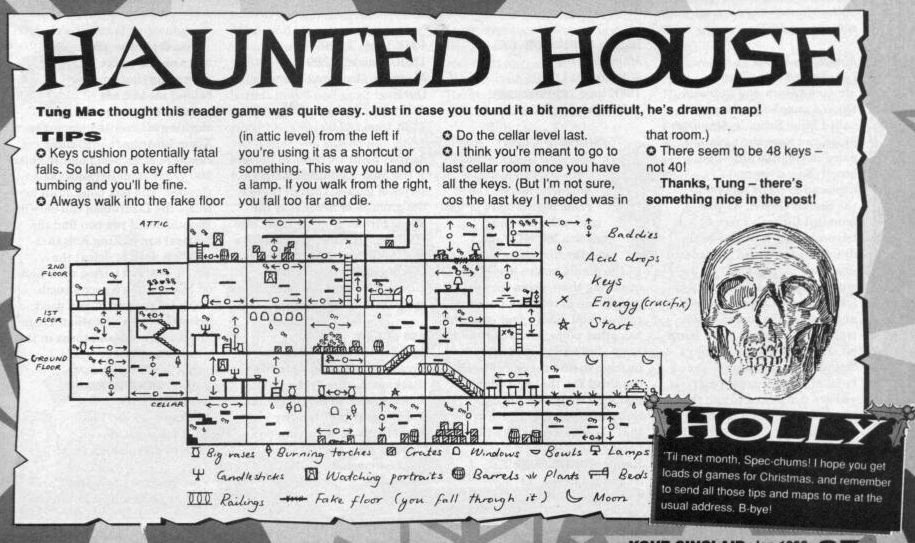 HAUNTED HOUSE
Tung Mac thought this reader game was quite easy. Just in case you found it a bit more difficult, he's drawn a map!
TIPS
Keys cushion potentially fatal
falls. So land on a key after
tumbing and you'll be fine.
Always walk into the fake floor
(in attic level) from the left if
you're using it as a shortcut or
something. This way you land on
a lamp. If you walk from the right,
you fall too far and die.
Do the cellar level last.
I think you're meant to go to
last cellar room once you have
all the keys. (But I'm not sure,
cos the last key I needed was in
that room.)
There seem to be 48 keys –
not 40!
Thanks, Tung – there's
something nice in the post!
ATTIC
2ND
FLOOR
1ST
FLOOR
GROUND
FLOOR
CELLAR
Baddies
Acid drops
Keys
Energy (crucifix)
Start
Big vases Burning torches Crates Windows Bowls Lamps
Candlesticks Watching portraits Barrels Plants Beds
Railings Fake floor (you fall through it) Moon
HOLLY
'Til next month, Spec-chums! I hope you get
loads of games for Christmas, and remember
to send all those tips and maps to me at the
usual address. B-bye!